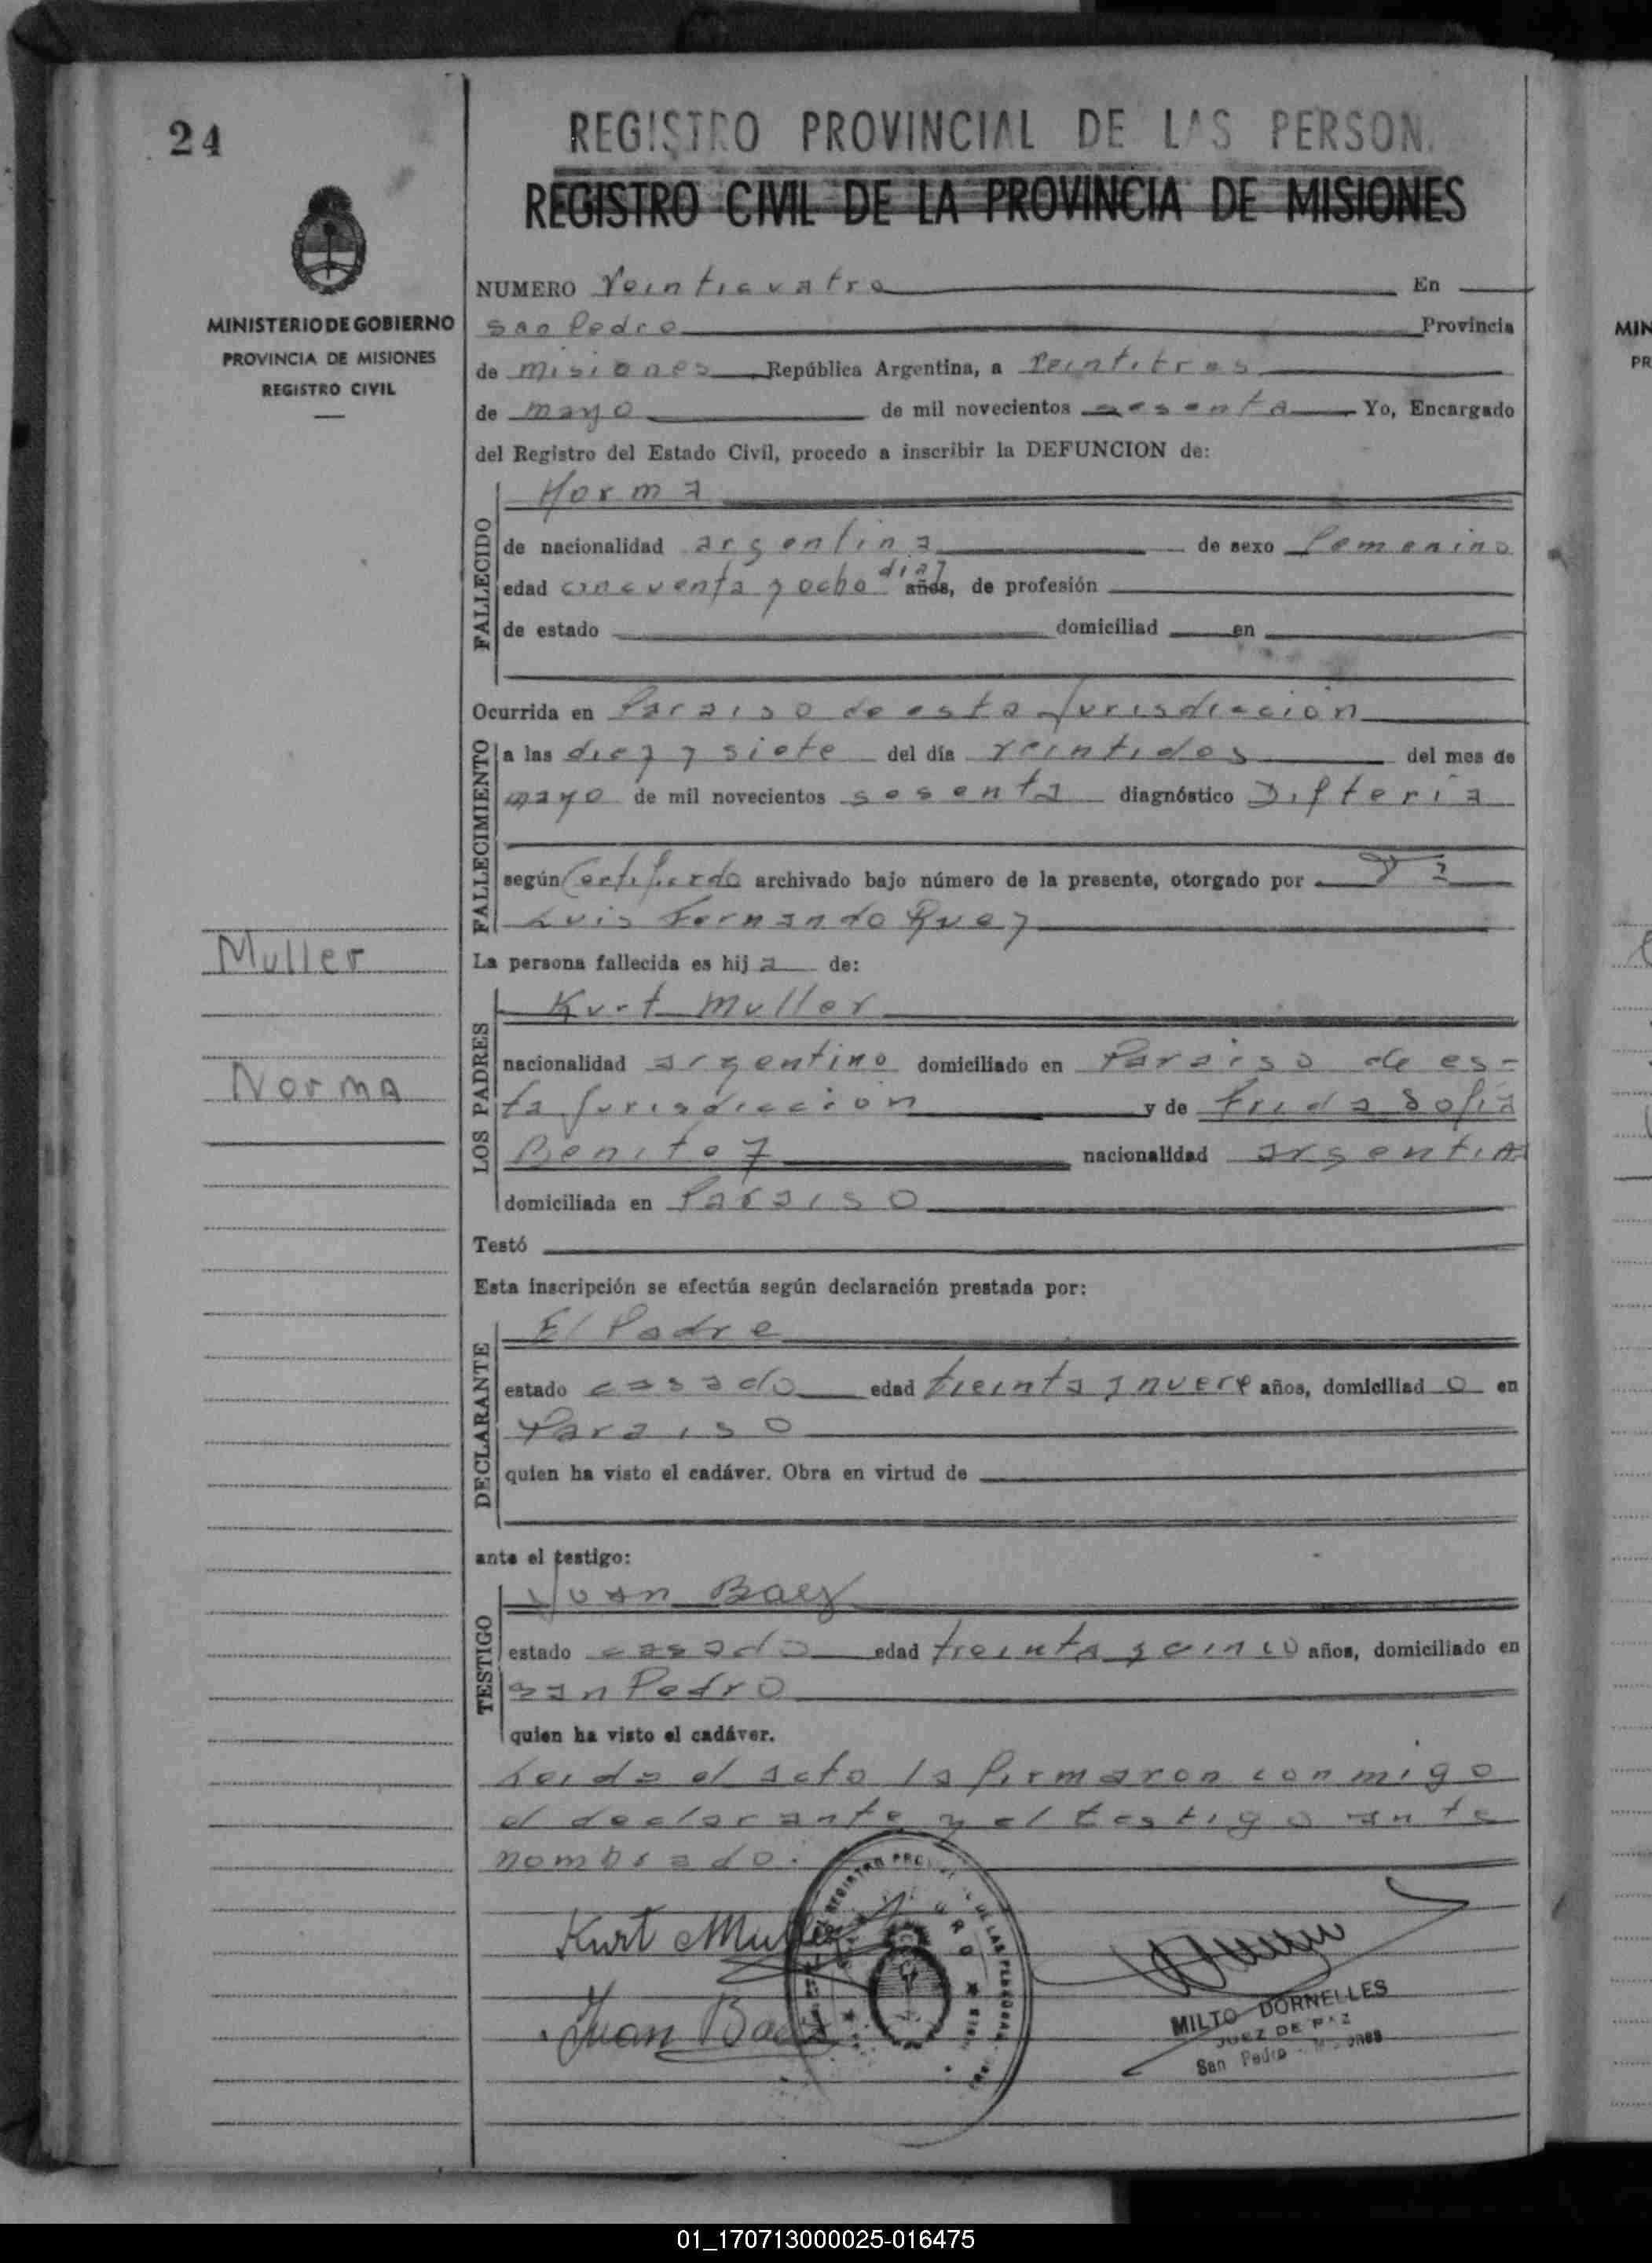 24
REGISTRO PROVINCIAL DE LAS PERSON.
REGISTRO CIVIL DE LA PROVINCIA DE MISIONES
MINISTERIO DE GOBIERNO
PROVINCIA DE MISIONES
REGISTRO CIVIL
NUMERO Veinticuatro En
San Pedro Provincia
de misiones República Argentina, a veintitres
de mayo de mil novecientos sesenta Yo, Encargado
del Registro del Estado Civil, procedo a inscribir la DEFUNCION de:
FALLECIDO
Norma
de nacionalidad argentina de sexo femenino
edad cincuenta y ocho dias años, de profesión
de estado domiciliad en
Ocurrida en Paraiso de esta Jurisdiccion
FALLECIMIENTO
a las diez y siete del día veintidos del mes de
mayo de mil novecientos sesenta diagnóstico Difteria
según Certificado archivado bajo número de la presente, otorgado por
Luis Fernando Ruez
La persona fallecida es hija de:
Muller
Norma
LOS PADRES
Kurt Muller
nacionalidad argentino domiciliado en Paraiso de es-
ta Jurisdiccion y de Frida Sofia
Benitez nacionalidad argentina
domiciliada en Paraiso
Testó
Esta inscripción se efectúa según declaración prestada por:
DECLARANTE
El Padre
estado casado edad treinta y nueve años, domiciliado en
Paraiso
quien ha visto el cadáver. Obra en virtud de
ante el testigo:
TESTIGO
Juan Baez
estado casado edad treinta y cinco años, domiciliado en
San Pedro
quien ha visto el cadáver.
Leida el acta la firmaron conmigo
el declarante y el testigo ante
nombrado.
Kurt Muller
Juan Baez
MILTO DORNELLES
JUEZ DE PAZ
San Pedro - Misiones
MIN
PR
01_170713000025-016475